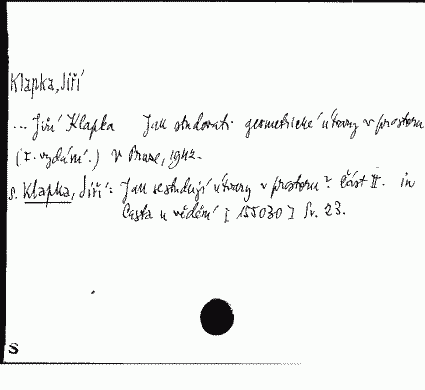 Klapka, Jiří
... Jiří Klapka Jak studovati geometrické útvary v prostoru
(I. vydání.) V Praze, 1942.
s. Klapka, Jiří: Jak se studují útvary v prostoru? Část II. in
Cesta k vědění [ 155030 ] Sv. 23.
S